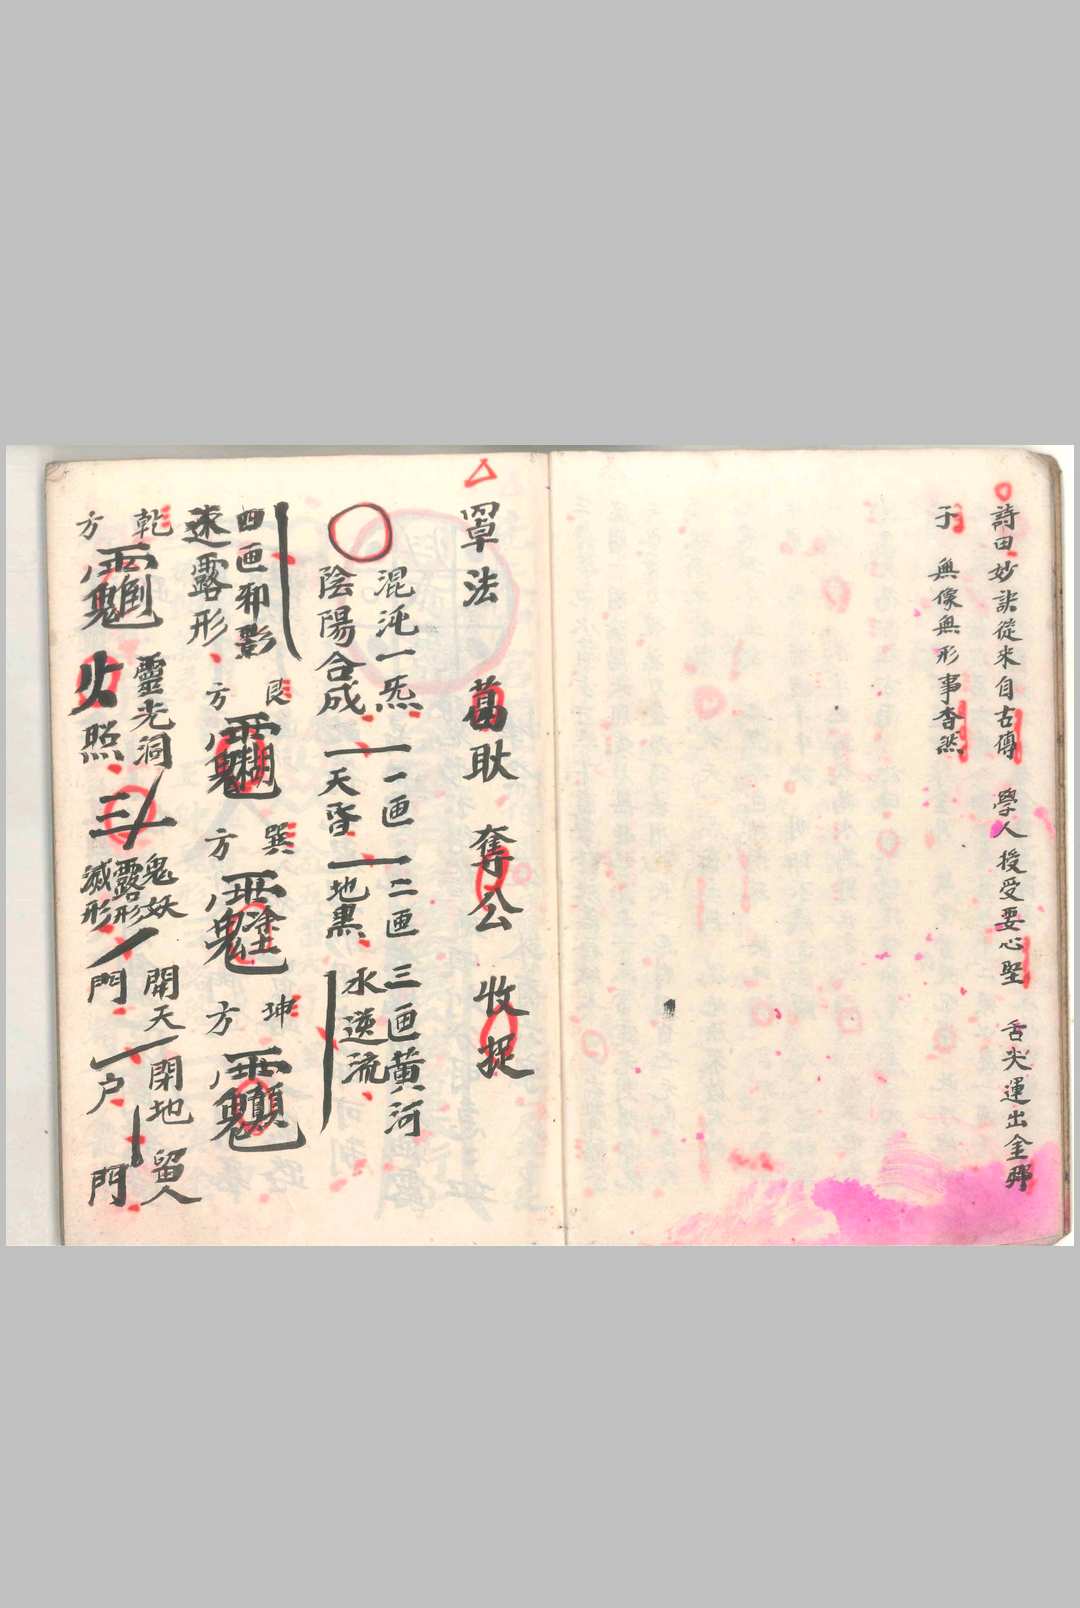 詩田妙訣從來自古傳　學人授受要心堅　舌尖運出金
子　無像無形事杳然
罩法　葛耿　奪公　收捉
混沌一炁
陰陽合成
一 一画
天昏
一 二画
地黑
三画黃河
水逆流
四画邪影
速露形
艮方
巽方
坤方
乾方
靈光洞
火照
鬼妖
露形
滅形
開天
門
閉地
户
留人
門